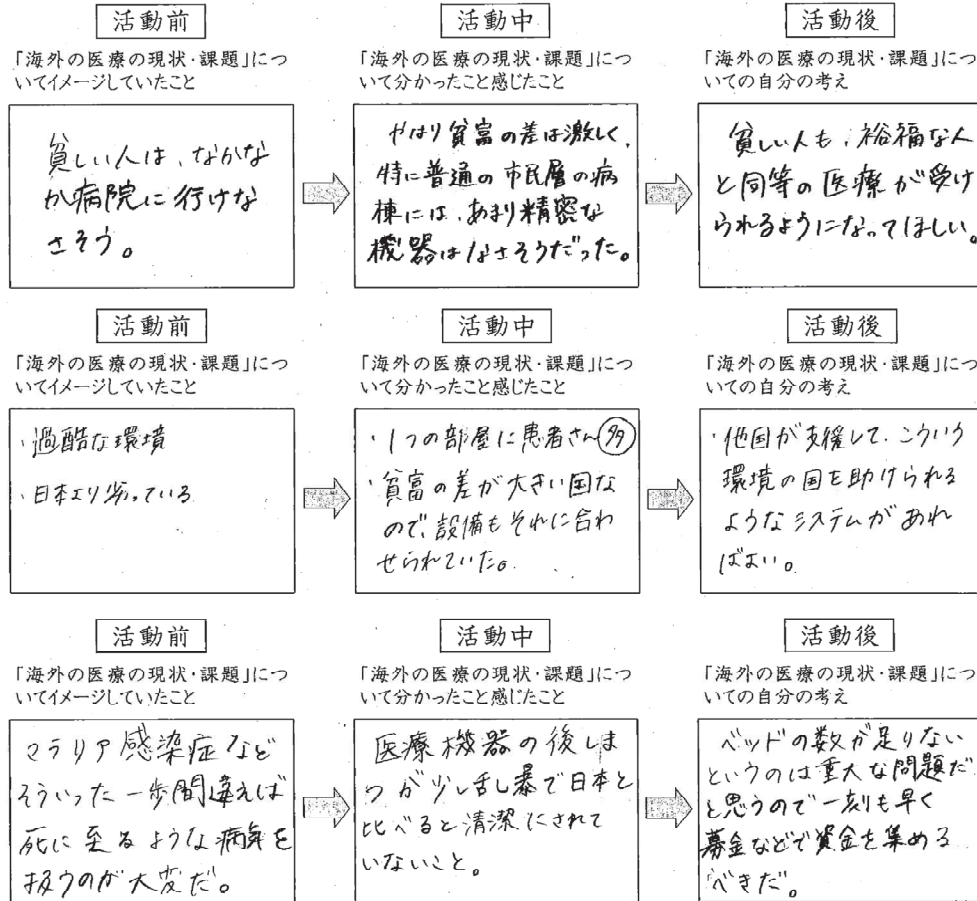 活動前
「海外の医療の現状・課題」につ
いてイメージしていたこと
貧しい人は、なかな
か病院に行けな
さそう。
活動中
「海外の医療の現状・課題」につ
いて分かったこと感じたこと
やはり貧富の差は激しく、
特に普通の市民層の病
棟には、あまり精密な
機器はなさそうだった。
活動後
「海外の医療の現状・課題」につ
いての自分の考え
貧しい人も、裕福な人
と同等の医療が受け
られるようになってほしい。
活動前
「海外の医療の現状・課題」につ
いてイメージしていたこと
・過酷な環境
・日本より劣っている
活動中
「海外の医療の現状・課題」につ
いて分かったこと感じたこと
・1つの部屋に患者さん多
・貧富の差が大きい国な
ので、設備もそれに合わ
せられていた。
活動後
「海外の医療の現状・課題」につ
いての自分の考え
・他国が支援して、こういう
環境の国を助けられる
ようなシステムがあれ
ばよい。
活動前
「海外の医療の現状・課題」につ
いてイメージしていたこと
マラリア感染症など
そういった一歩間違えば
死に至るような病気を
扱うのが大変だ。
活動中
「海外の医療の現状・課題」につ
いて分かったこと感じたこと
医療機器の後しま
つが少し乱暴で日本と
比べると清潔にされて
いないこと。
活動後
「海外の医療の現状・課題」につ
いての自分の考え
ベッドの数が足りない
というのは重大な問題だ
と思うので一刻も早く
募金などで資金を集める
べきだ。